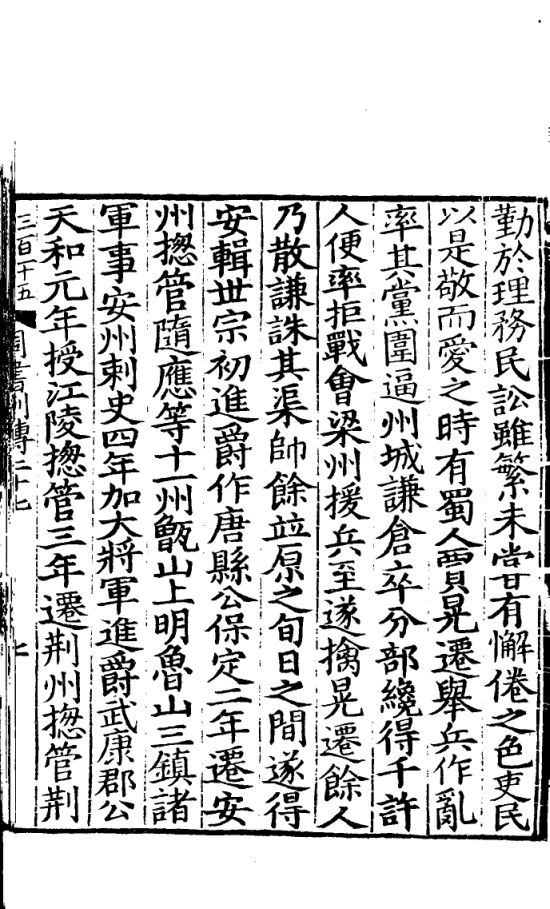 勤於理務民訟雖繁未甞有懈倦之色吏民
以是敬而愛之時有蜀人賈晃遷舉兵作亂
率其黨圍逼州城謙倉卒分部纔得千許
人便率拒戰會梁州援兵至遂擒晃遷餘人
乃散謙誅其渠帥餘竝原之旬日之間遂得
安輯世宗初進爵作唐縣公保定二年遷安
州摠管隨應等十一州甑山上明魯山三鎮諸
軍事安州刺史四年加大將軍進爵武康郡公
天和元年授江陵摠管三年遷荆州摠管荆
三百十五 周書列傳二十七 七